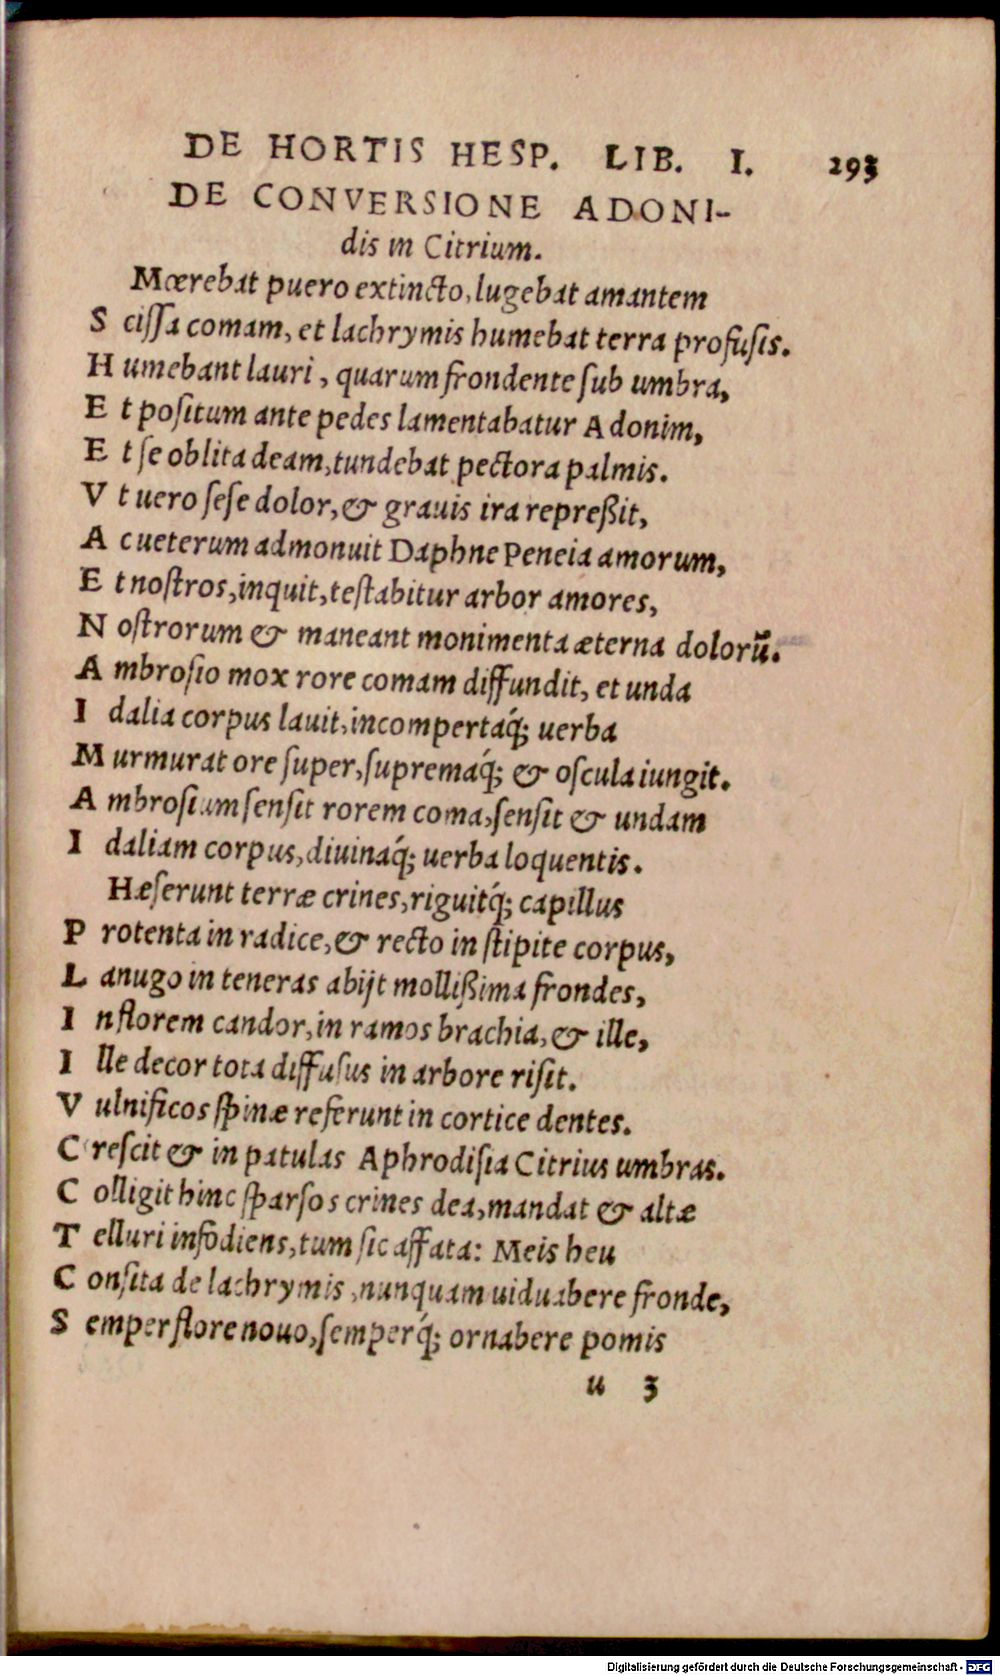 DE HORTIS HESP. LIB. I. 293
DE CONVERSIONE ADONI-
dis in Citrium.
Mœrebat puero extincto, lugebat amantem
S cißa comam, et lachrymis humebat terra profusis.
H umebant lauri, quarum frondente sub umbra,
E t positum ante pedes lamentabatur Adonim,
E t se oblita deam, tundebat pectora palmis.
V t uero sese dolor, & grauis ira repreßit,
A c ueterum admonuit Daphne Peneia amorum,
E t nostros, inquit, testabitur arbor amores,
N ostrorum & maneant monimenta æterna dolorũ.
A mbrosio mox rore comam diffundit, et unda
I dalia corpus lauit, incompertaq́; uerba
M urmurat ore super, supremaq́; & oscula iungit.
A mbrosium sensit rorem coma, sensit & undam
I daliam corpus, diuinaq́; uerba loquentis.
Hæserunt terræ crines, riguitq́; capillus
P rotenta in radice, & recto in stipite corpus,
L anugo in teneras abijt mollißima frondes,
I n florem candor, in ramos brachia, & ille,
I lle decor tota diffusus in arbore risit.
V ulnificos spinæ referunt in cortice dentes.
C rescit & in patulas Aphrodisia Citrius umbras.
C olligit hinc sparsos crines dea, mandat & altæ
T elluri infodiens, tum sic affata: Meis heu
C onsita de lachrymis, nunquam uiduabere fronde,
S emper flore nouo, semperq́; ornabere pomis
u 3
Digitalisierung gefördert durch die Deutsche Forschungsgemeinschaft - DFG